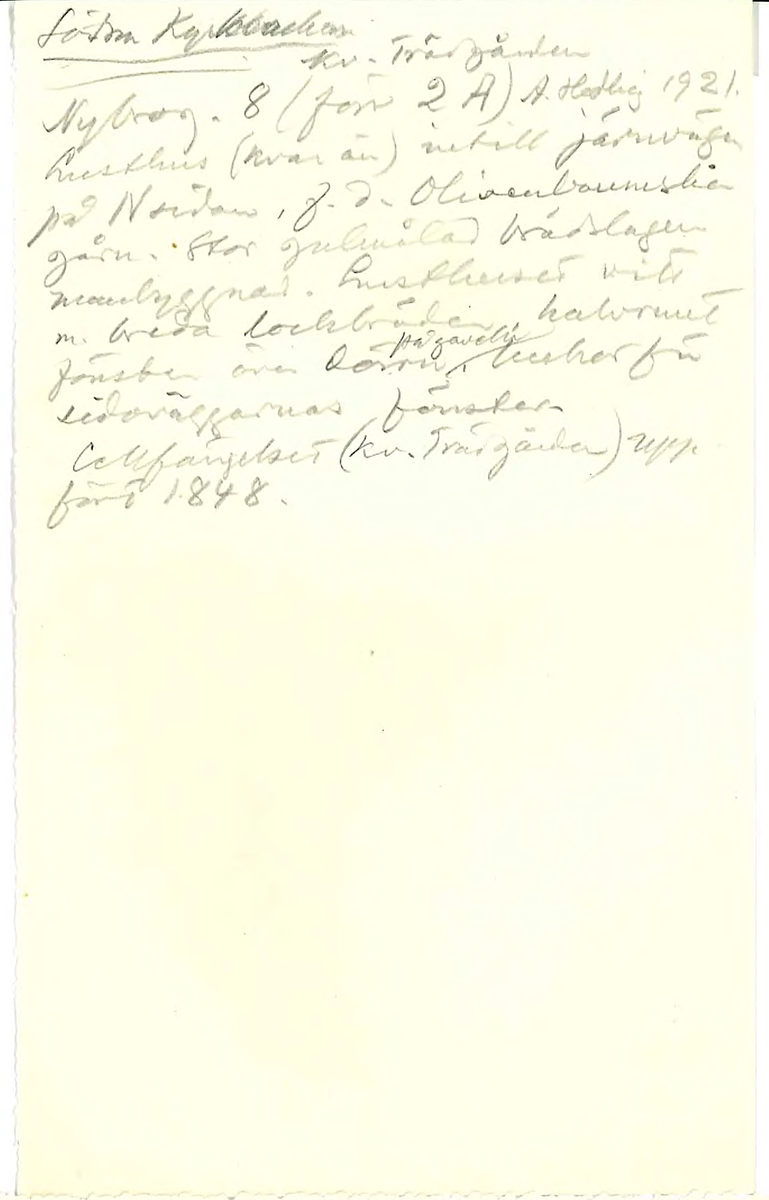 Södra Kyrkbacken
kv. Trädgården
Nybrog. 8 (förr 2 A) A. Hedbig 1921.
Lusthus (kvar än) intill järnvägen
på N sidan, f. d. Olivenbaumska
gårn. Stor gulmålad brädslagen
manbyggnad. Lusthuset vitt
m. breda lockbräden, halvrunt
fönster över dörrn, på gaveln, luckor för
sidoväggarnas fönster.
Cellfängelset (kv. Trädgården) upp
fört 1848.